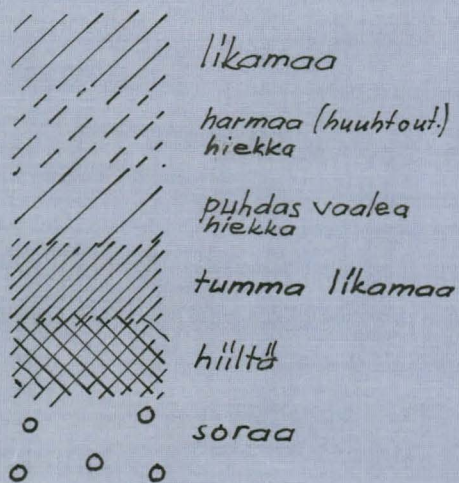 likamaa
harmaa (huuhtout.)
hiekka
puhdas vaalea
hiekka
tumma likamaa
hiiltä
soraa